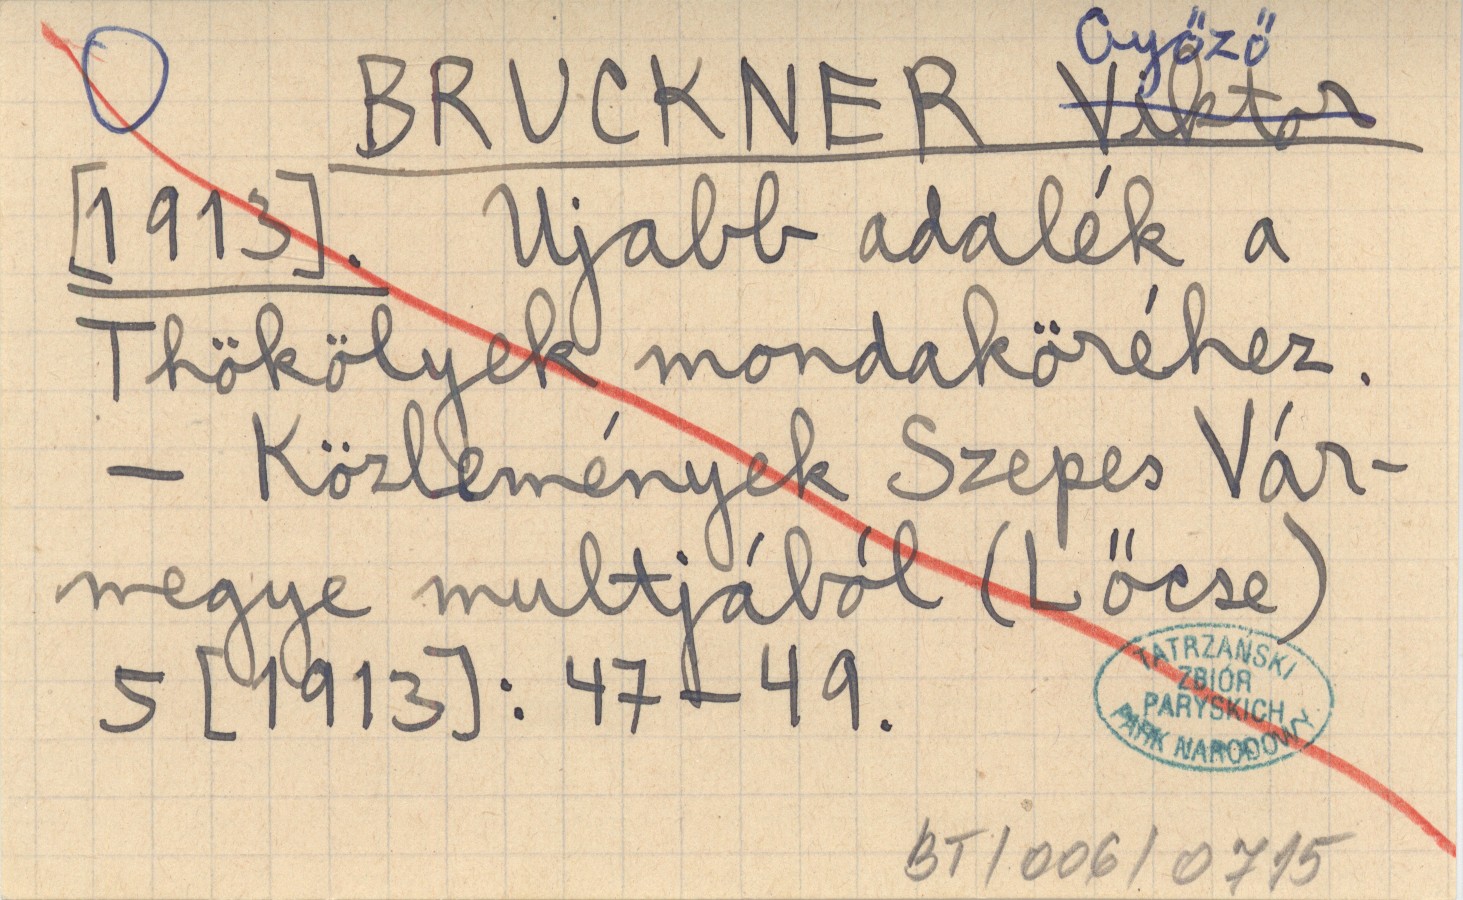 Győző
BRUCKNER Viktor
[1913]. Ujabb adalék a
Thökölyek mondaköréhez.
— Közlemények Szepes Vár-
megye multjából (Lőcse)
5 [1913]: 47-49.
TATRZAŃSKI
ZBIÓR
PARYSKICH
PARK NARODOWY
BT/006/0715